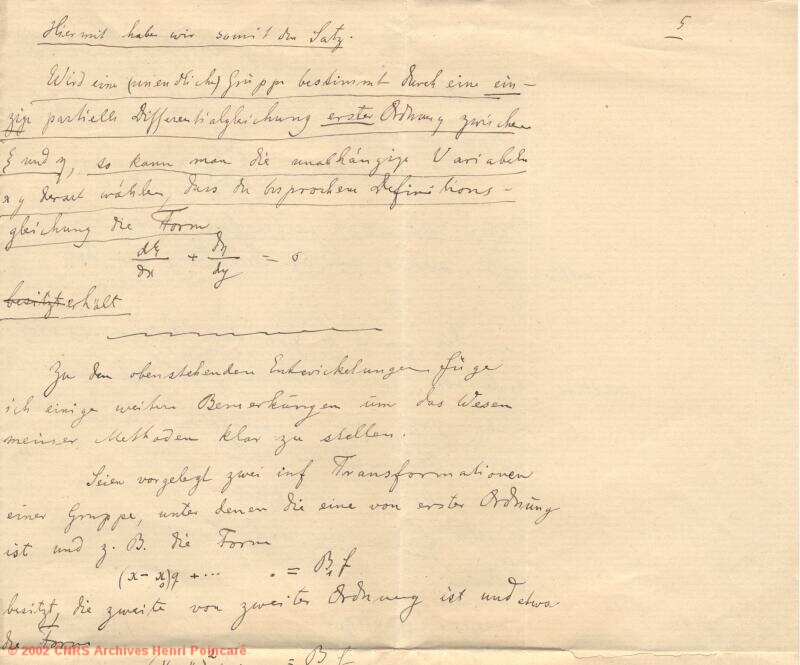 5
Hiermit haben wir somit den Satz.
Wird eine (unendliche) Gruppe bestimmt durch eine ein-
zige partielle Differentialgleichung erster Ordnung zwischen
ξ und η, so kann man die unabhängige Variabeln
x y derart wählen, dass die besprochene Definitions-
gleichung die Form
dξ/dx + dη/dy = 0
besitzt erhält
Zu den obenstehenden Entwickelungen füge
ich einige weitere Bemerkungen um das Wesen
meiner Methoden klar zu stellen.
Seien vorgelegt zwei inf Transformationen
einer Gruppe, unter denen die eine von erster Ordnung
ist und z. B. die Form
(x - x₀)q + ··· · = B₁f
besitzt, die zweite von zweiter Ordnung ist und etwa
die Form
© 2002 CNRS Archives Henri Poincaré